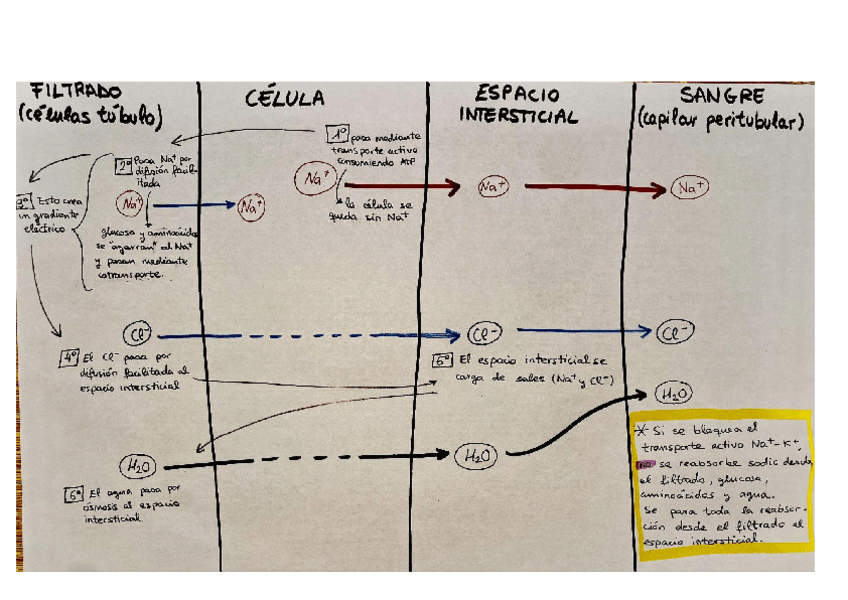 FILTRADO
(células túbulo)
CÉLULA
ESPACIO
INTERSTICIAL
SANGRE
(capilar peritubular)
1º pasa mediante
transporte activo
consumiendo ATP
Na⁺
la célula se
queda sin Na⁺
Na⁺
Na⁺
2º Pasa Na⁺ por
difusión facili-
tada
Na⁺
Na⁺
glucosa y aminoácidos
se "agarran" al Na⁺
y pasan mediante
cotransporte.
3º Esto crea
un gradiente
eléctrico
Cl⁻
Cl⁻
Cl⁻
4º El Cl⁻ pasa por
difusión facilitada al
espacio intersticial
5º El espacio intersticial se
carga de sales (Na⁺ y Cl⁻)
H₂O
H₂O
H₂O
6º El agua pasa por
ósmosis al espacio
intersticial.
* Si se bloquea el
transporte activo Na⁺-K⁺,
no se reabsorbe sodio desde
el filtrado, glucosa,
aminoácidos y agua.
Se para toda la reabsor-
ción desde el filtrado al
espacio intersticial.